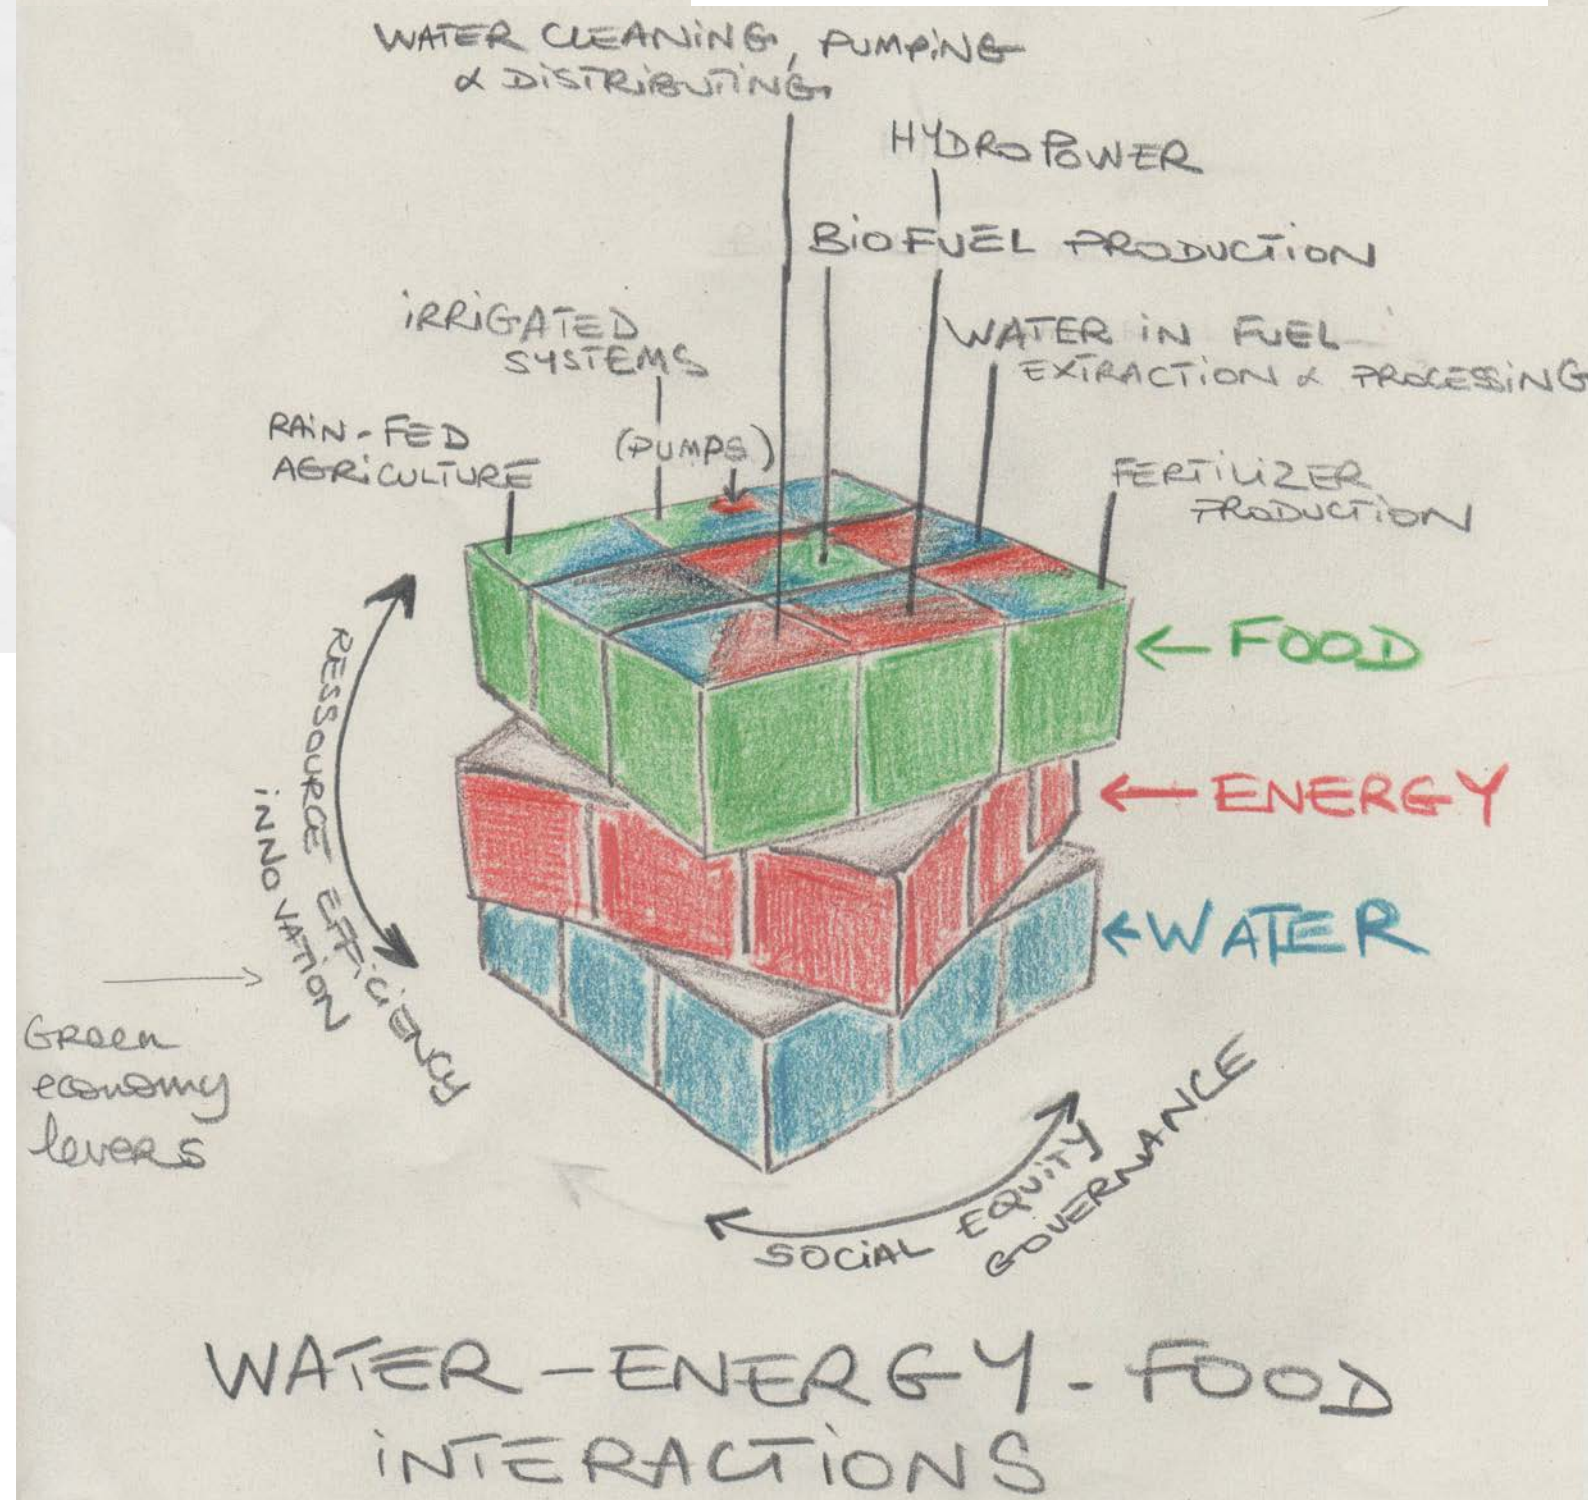 WATER CLEANING, PUMPING
& DISTRIBUTING
HYDROPOWER
BIOFUEL PRODUCTION
IRRIGATED
SYSTEMS
WATER IN FUEL
EXTRACTION & PROCESSING
RAIN-FED
AGRICULTURE
(PUMPS)
FERTILIZER
PRODUCTION
FOOD
ENERGY
WATER
RESSOURCE EFFICIENCY
INNOVATION
Green
economy
levers
SOCIAL EQUITY
GOVERNANCE
WATER-ENERGY-FOOD
INTERACTIONS